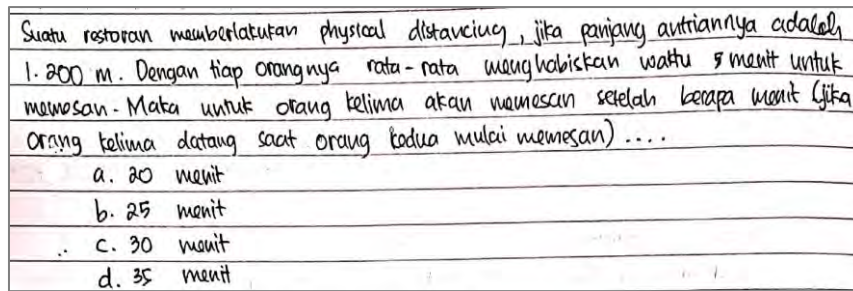 Suatu restoran memberlakukan physical distancing, jika panjang antriannya adalah
1.200 m. Dengan tiap orangnya rata-rata menghabiskan waktu 5 menit untuk
memesan. Maka untuk orang kelima akan memesan setelah berapa menit (jika
orang kelima datang saat orang kedua mulai memesan) ....
a. 20 menit
b. 25 menit
c. 30 menit
d. 35 menit